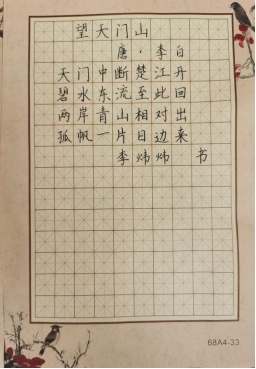 望天门山
唐·李白
天门中断楚江开
碧水东流至此回
两岸青山相对出
孤帆一片日边来
李炜炜 书
68A4-33